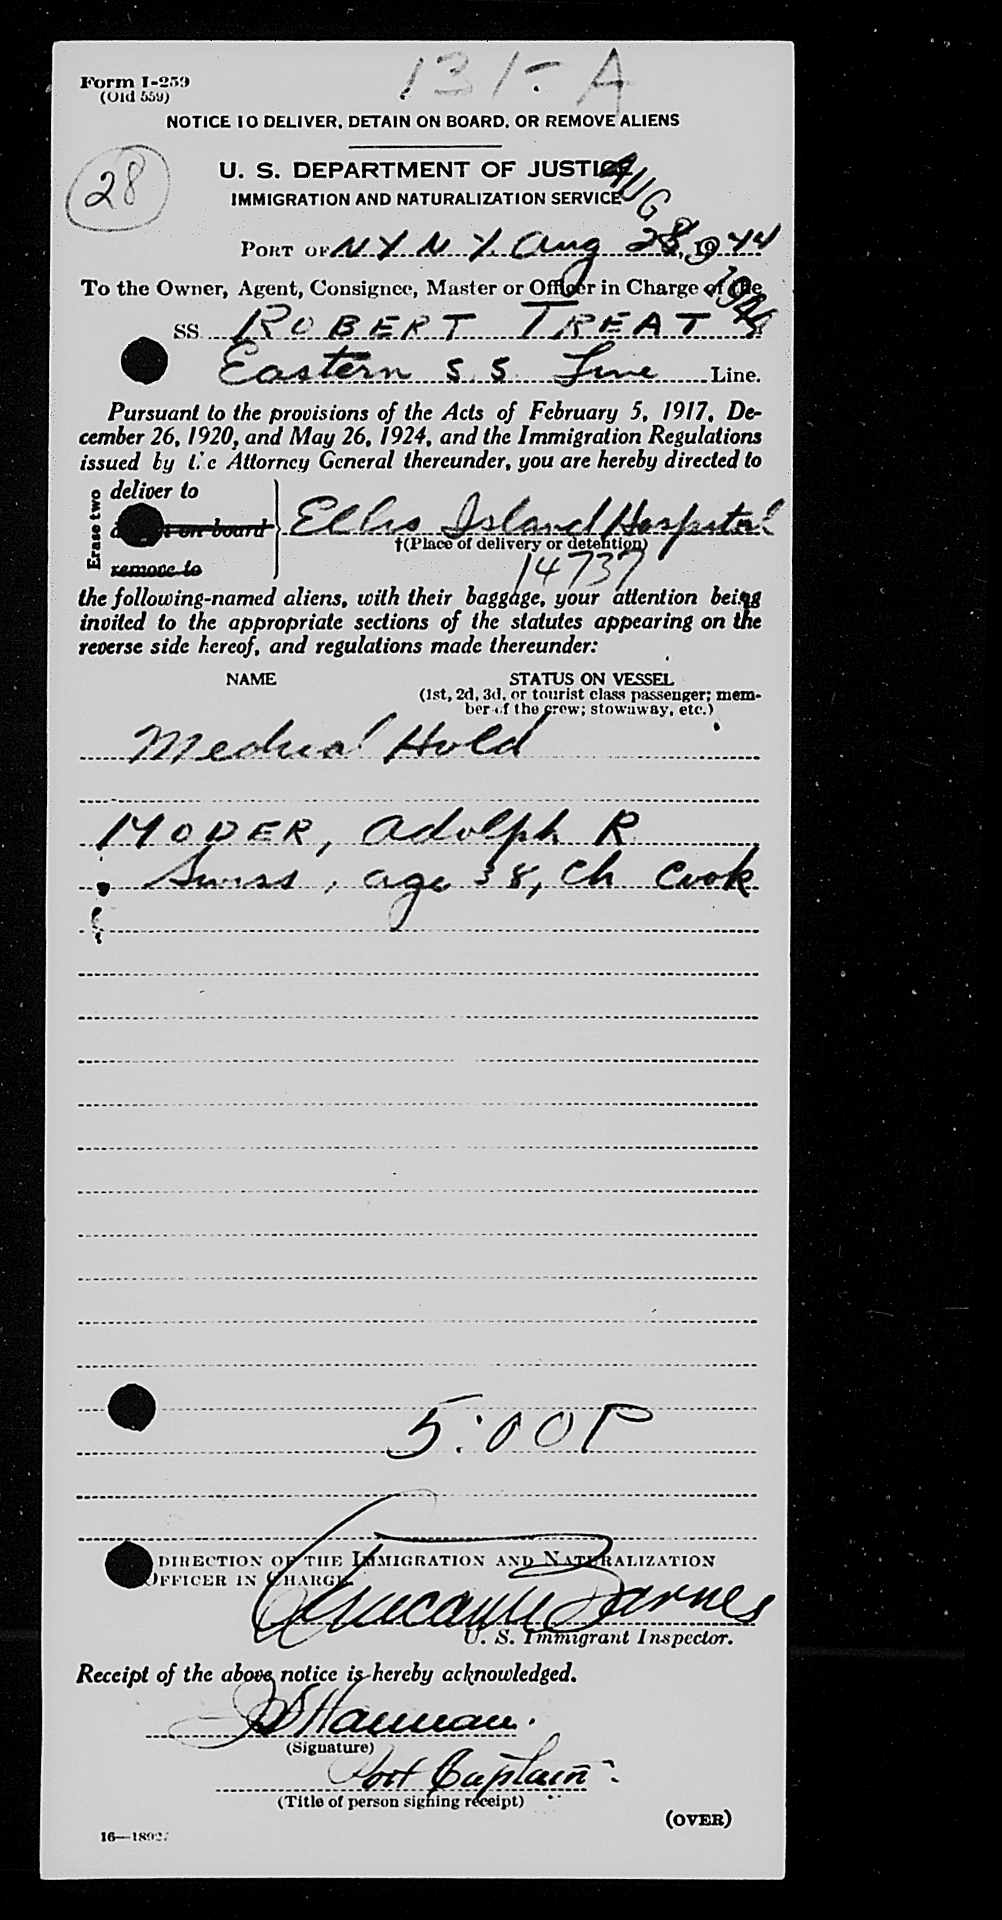 131-A
Form I-259
(Old 559)
NOTICE TO DELIVER, DETAIN ON BOARD, OR REMOVE ALIENS
28
U. S. DEPARTMENT OF JUSTICE
IMMIGRATION AND NATURALIZATION SERVICE
AUG 28 1944
PORT OF N Y N Y. Aug 28, 1944
To the Owner, Agent, Consignee, Master or Officer in Charge of the
SS. ROBERT TREAT
Eastern S. S. Line Line.
Pursuant to the provisions of the Acts of February 5, 1917, De-
cember 26, 1920, and May 26, 1924, and the Immigration Regulations
issued by the Attorney General thereunder, you are hereby directed to
Erase two
deliver to
on board
remove to
Ellis Island Hospital
†(Place of delivery or detention)
14737
the following-named aliens, with their baggage, your attention being
invited to the appropriate sections of the statutes appearing on the
reverse side hereof, and regulations made thereunder:
NAME STATUS ON VESSEL
(1st, 2d, 3d, or tourist class passenger; mem-
ber of the crew; stowaway, etc.)
Medical Hold
MODER, Adolph R.
Swiss, age 38, Ch Cook
5:00P
DIRECTION OF THE IMMIGRATION AND NATURALIZATION
OFFICER IN CHARGE.
Barnes
U. S. Immigrant Inspector.
Receipt of the above notice is hereby acknowledged.
Hannan.
(Signature)
Port Captain
(Title of person signing receipt)
(OVER)
16—1892